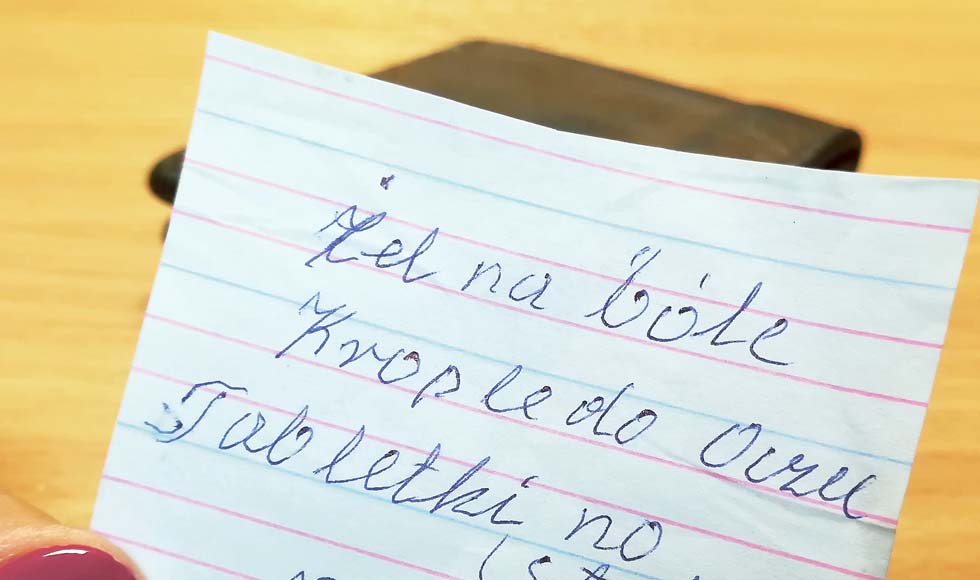 Żel na bóle
Krople do oczu
Tabletki na